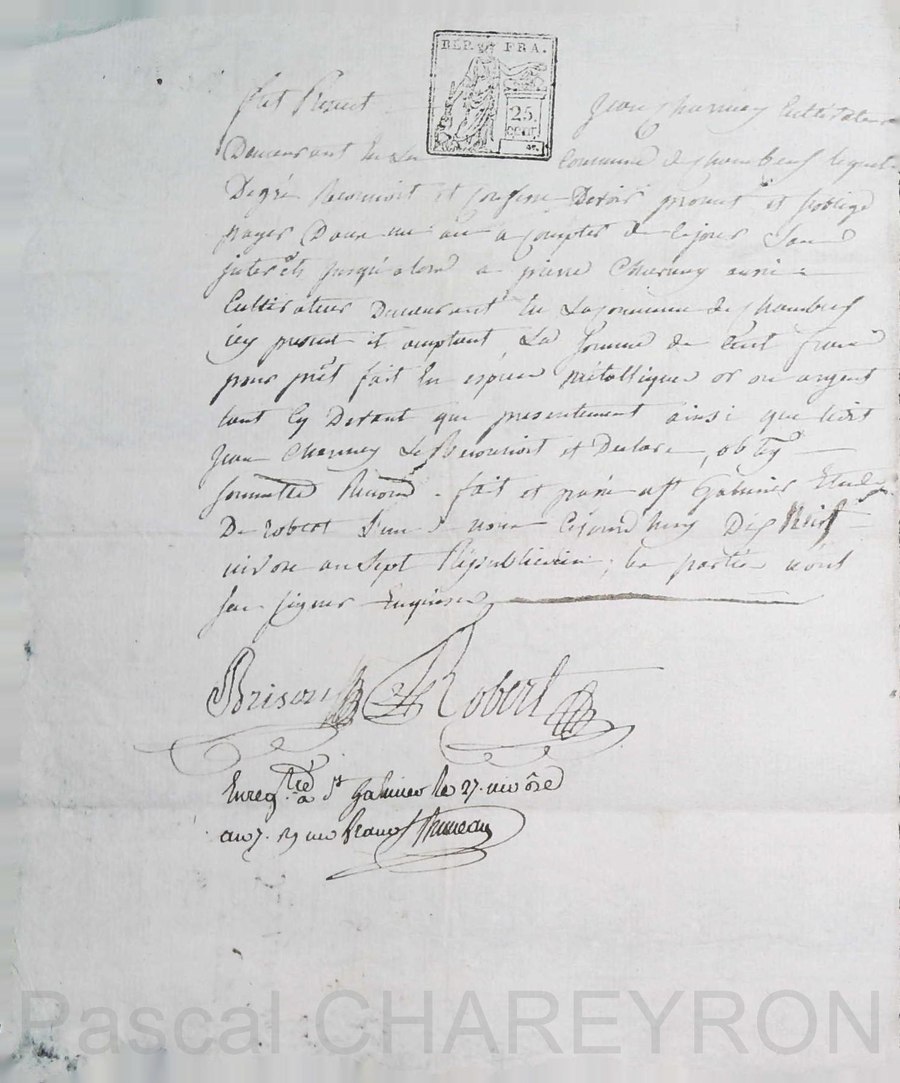 REP. FRA.
25.
cent.
fut Present Jean Charmey Cultivateur
Demeurant En La Commune de Chambeuf lequel
Degré Reconnoit et confesse Devoir promet et soblige
payer Dans un an a Compter de cejour Sans
interêts jusqu'alord a pierre Charmey aussi
Cultivateur Demeurant En Lacommune de Chambeuf
icy present et acceptant, La Somme de Cent francs
pour prêt fait En espèces métalliques or ou argent
tant Cy Devant que presentement ainsi que ledit
Jean Charmey Le Reconnoit et Declare, oblig
Soumettre Renonc. fait et passé a St Galmier Etude
De Robert L'un de nous Cejourd'huy Dix huit
nivose an Sept Républicain; les parties n'ont
Su signer Enquises
Brison Robert
Enreg.tré à St Galmier le 27. nivôse
an 7. R un franc
Pascal CHAREYRON